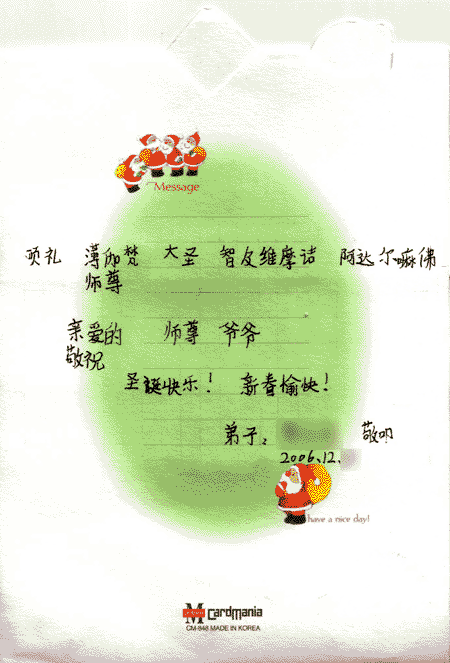 Message
顶礼 薄伽梵 大圣 智友维摩诘 阿达尔嘛佛
师尊
亲爱的 师尊 爷爷
敬祝
圣诞快乐! 新春愉快!
弟子: 敬叩
2006.12.
have a nice day!
M cardmania
CM-848 MADE IN KOREA